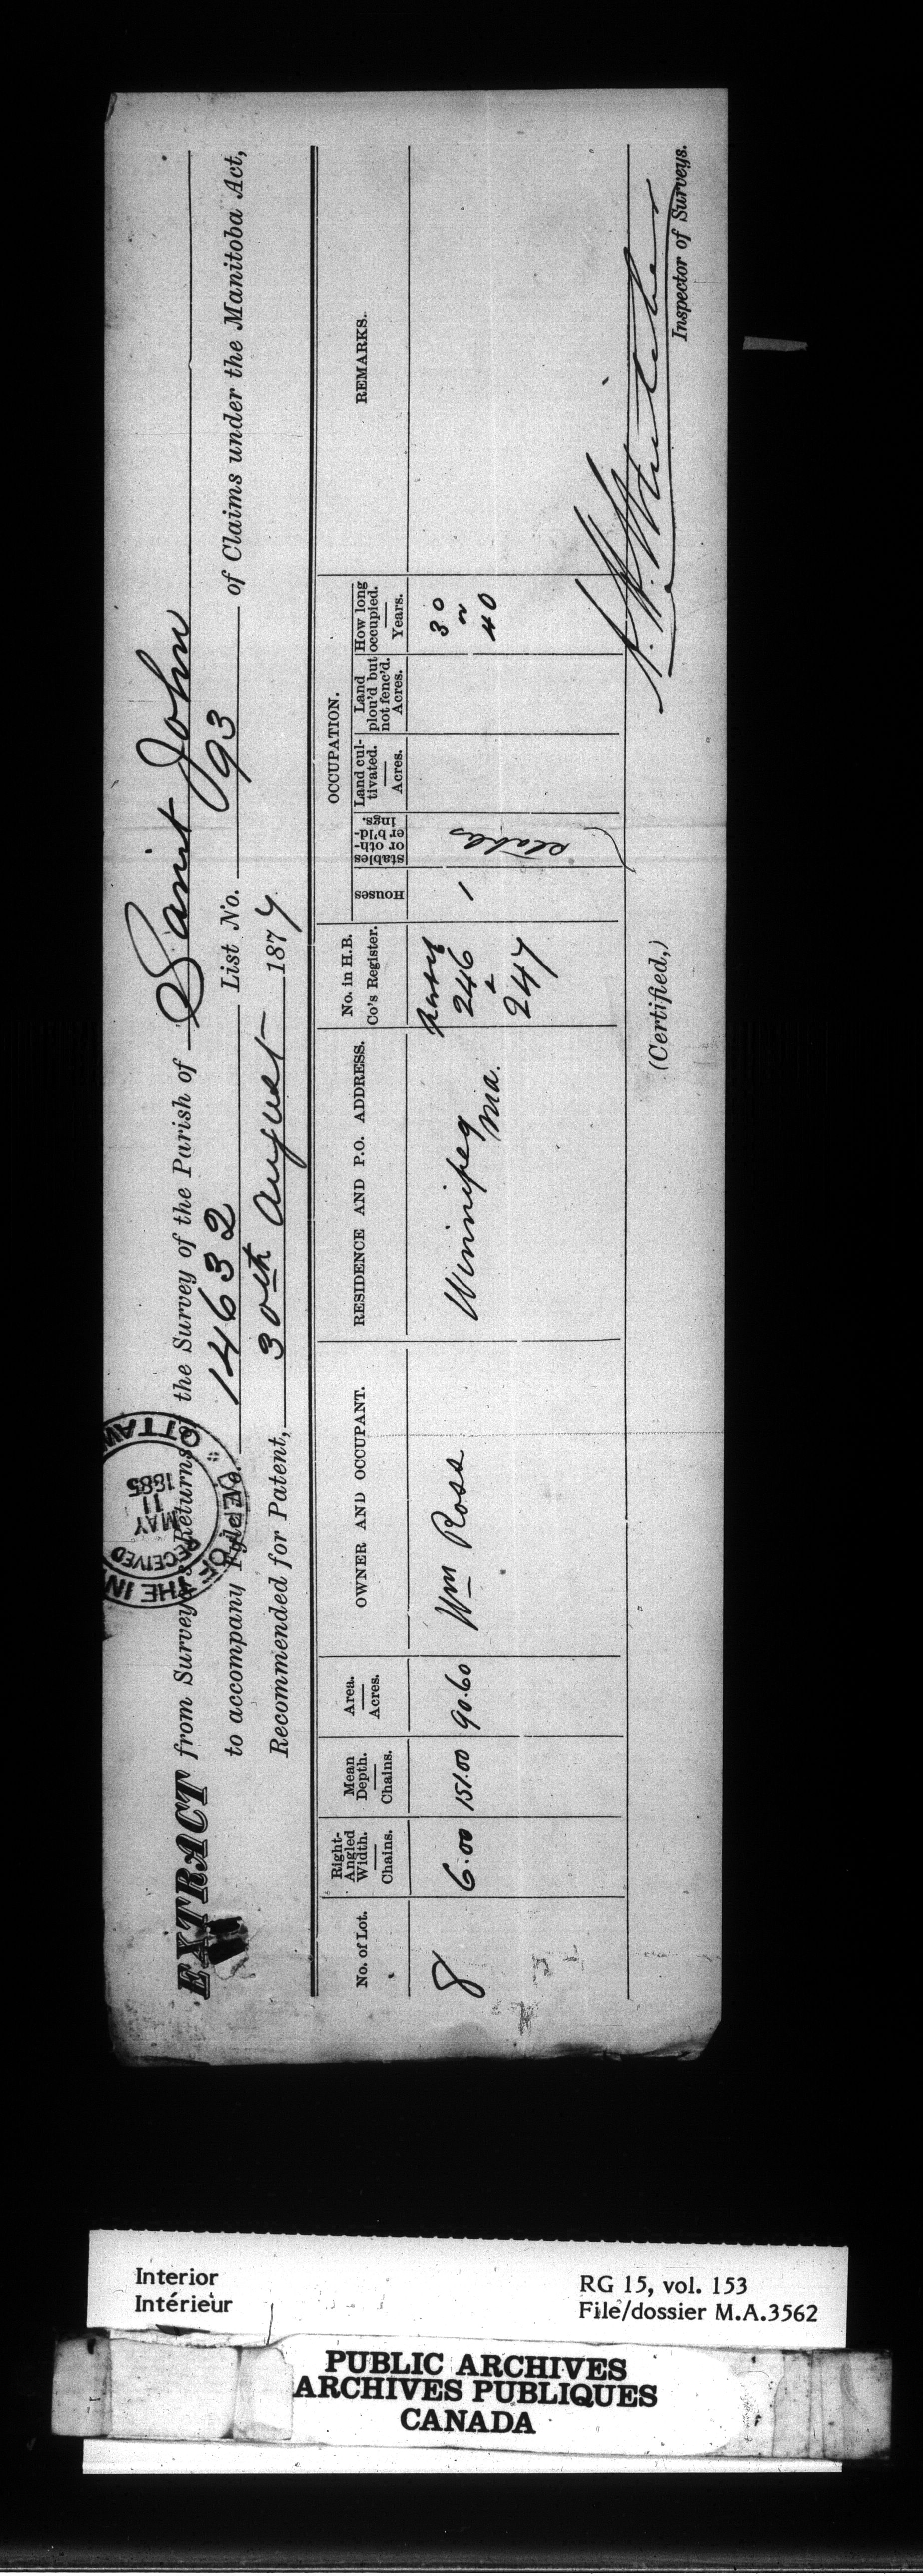 EXTRACT from Surveyor's Returns of the Survey of the Parish of Saint John
to accompany Fyle No. 14632 List No. 93 of Claims under the Manitoba Act,
Recommended for Patent, 30th August 1877
DEPT OF THE IN OTTAWA
RECEIVED
MAY
11
1885
No. of Lot.
Right-Angled Width. Chains.
Mean Depth. Chains.
Area. Acres.
OWNER AND OCCUPANT.
RESIDENCE AND P.O. ADDRESS.
No. in H.B. Co's Register.
OCCUPATION.
Houses
stables or other b'ld-ings.
Land cul-tivated. Acres.
Land plou'd but not fenc'd. Acres.
How long occupied. Years.
REMARKS.
8 6.00 151.00 90.60 Wm Ross Winnipeg Ma. part 246 & 247 1 stables 30 or 40
(Certified,)
Inspector of Surveys.
Interior
Intérieur
RG 15, vol. 153
File/dossier M.A.3562
PUBLIC ARCHIVES
ARCHIVES PUBLIQUES
CANADA